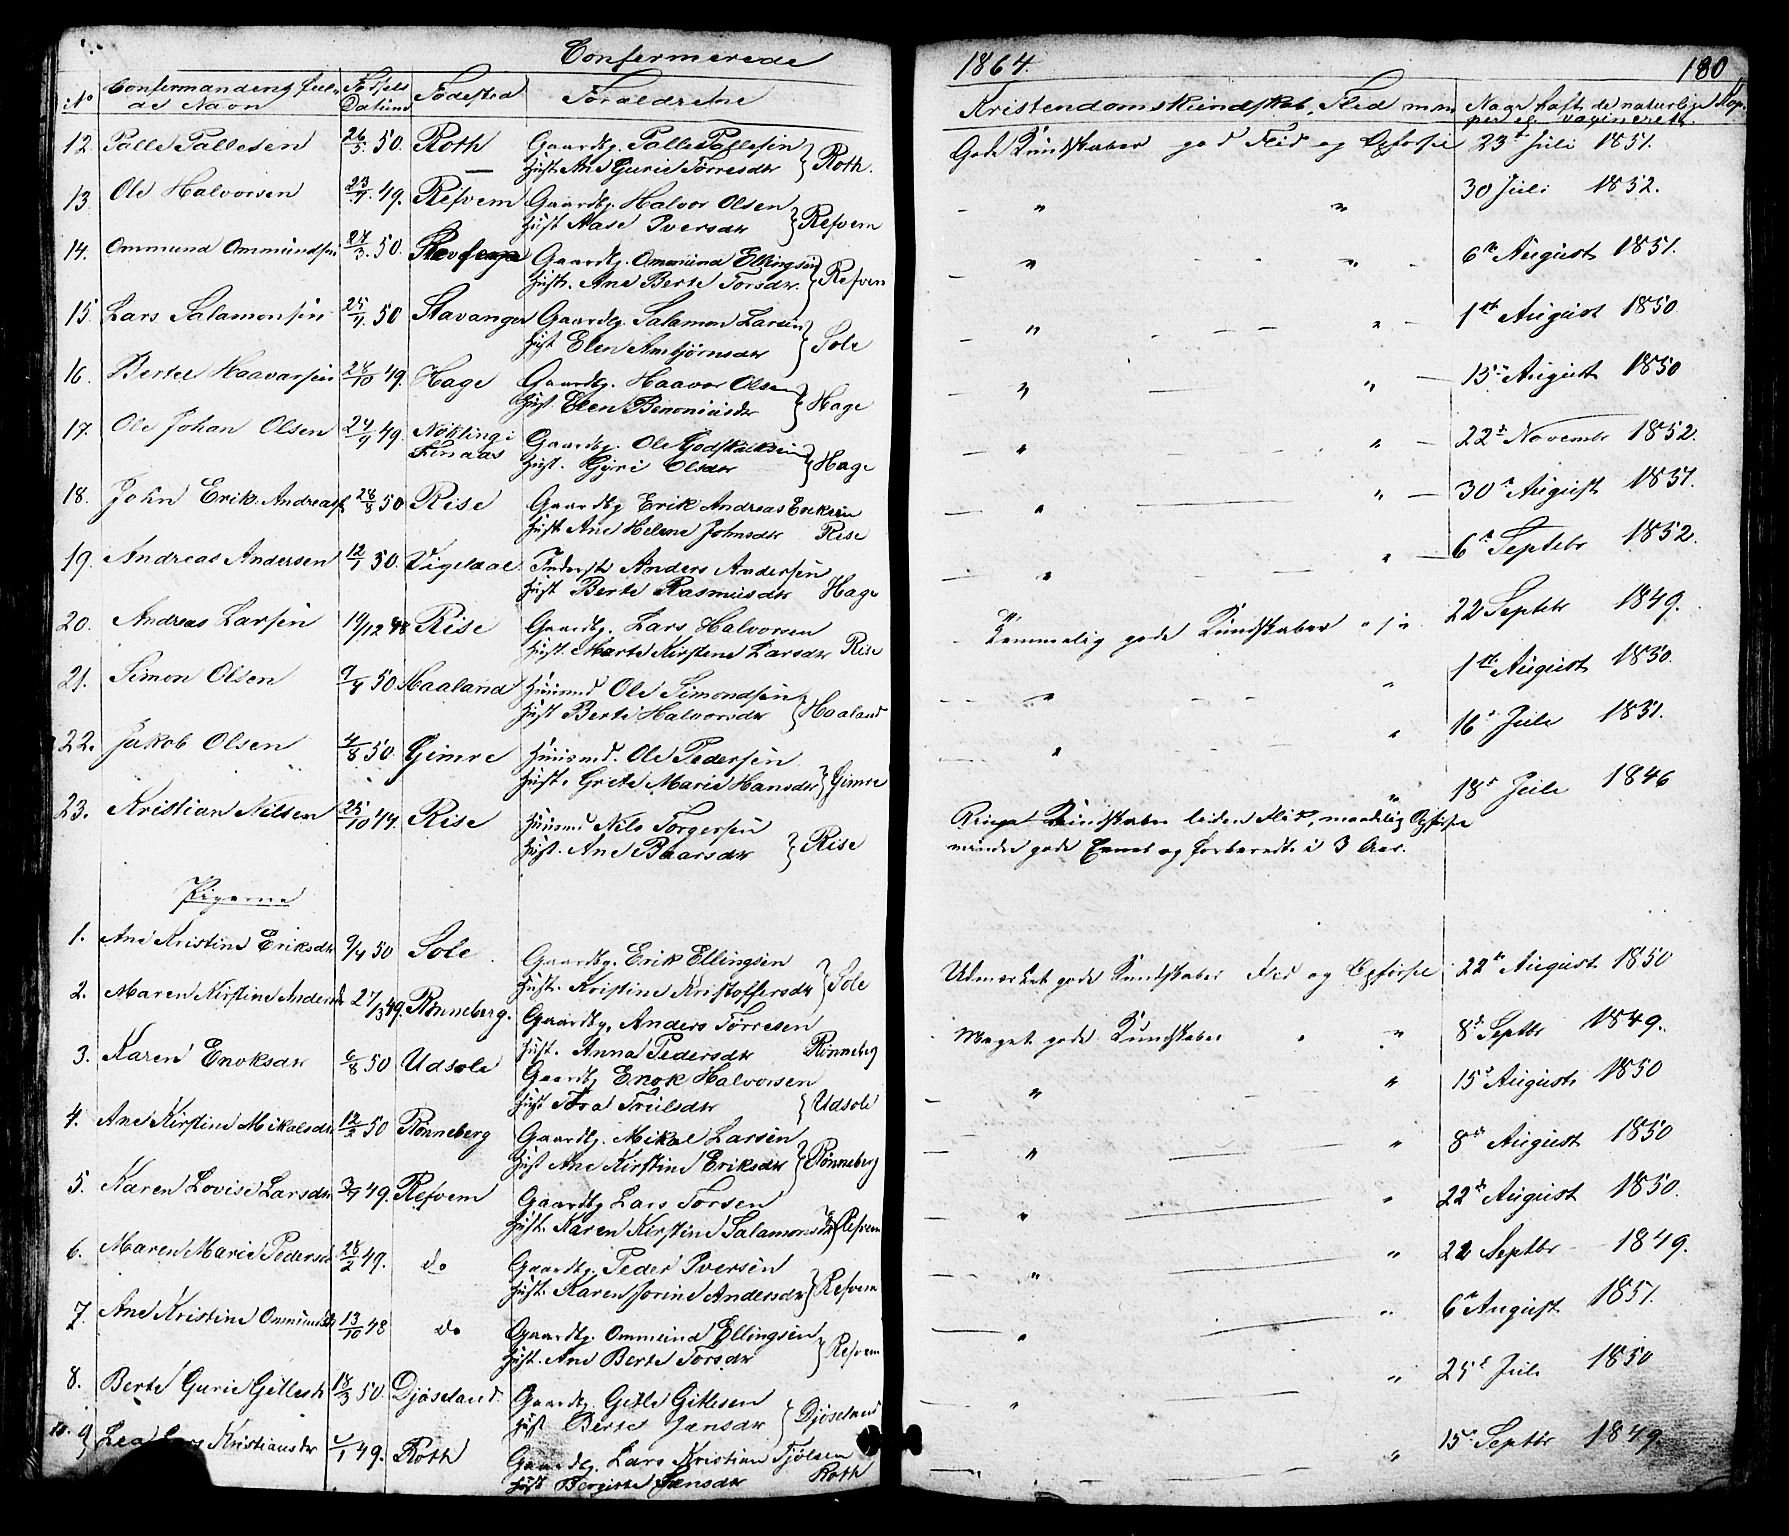 Confermerede
1864.
180
No
Confermandens fulde Navn
Fødsels Datum
Fødested
Forældrene
Kristendomskundskab, Flid m.m.
Naar havt de naturlige Kopper el. vaccineret
12. Palle Pallesen 26/3 50. Roth Gaardbg. Palle Pallesen
Hust. Ane Gurie Torresdtr } Roth.
Gode Kundskaber god Flid og Opførsel 23d Juli 1851.
13. Ole Halvorsen 23/9 49. Refvem Gaardbg. Halvor Olsen
Hust Aase Iversdtr } Refvem
" " 30 Juli 1852.
14. Ommund Ommundsen 27/3 50. Gaardbg. Ommund Ellingsen
Hust. Ane Berte Torsdtr. } Refvem
" " 6te August 1851.
15. Lars Salamonsen 25/4 50 Stavanger Gaardbg. Salamon Larsen
Hust Elen Ambjørnsdtr } Sole
" " 1ste August 1850.
16. Bertel Haavarsen 28/10 49. Hage Gaardbg. Haavor Olsen
Hust. Elen Benoniusdtr } Hage
" " 15de August 1850
17. Ole Johan Olsen 24/9 49. Nøkling i Finaas Gaardbg. Ole Godskalksen
Hust. Gyri Olsdtr } Hage
" " 22d Novembr 1852.
18. John Erik Andreas 28/8 50 Rise Gaardbg Erik Andreas Eriksen
Hust Ane Helene Johnsdtr Rise
" " 30te August 1851.
19. Andreas Andersen 12/1 50. Vigeldal Inderst Anders Andersen
Hust Berte Rasmusdtr Hage
" " 6te Septebr 1852.
20. Andreas Larsen 19/12 48 Rise Gaardbg. Lars Halvorsen
Hust. Marte Kirstene Larsdtr Rise
Temmelig gode Kundskaber 22 Septebr 1849.
21. Simon Olsen 9/4 50 Haaland Huusmd Ole Simondsen
Hust Berte Halvorsdtr } Haaland
" " 1ste August 1850.
22. Jakob Olsen 4/8 50. Gimre Huusmd. Ole Pedersen
Hust. Grete Marie Hansdtr } Gimre
" " 16d Juli 1851.
23. Kristian Nilsen 25/10 44. Rise Huusmd Nils Torgersen
Hust. Ane Baarsdtr } Rise
" 18d Juli 1846
Ringe Kundskaber liden Flid, maadelig Opførsel
mindre gode Evner og forberedt i 3 Aar.
Pigerne
1. Ane Kristine Eriksdtr 9/4 50 Sole. Gaardbg. Erik Ellingsen
Hust. Kristine Kristoffersdtr } Sole
Udmærket gode Kundskaber Flid og Opførsel 22de August 1850
2. Maren Kirstine Andersd 27/3 49. Rønneberg. Gaardbg. Anders Torresen
Hust. Anna Pedersdtr Rønneberg
Meget gode Kundskaber " " 8d Septbr 1849.
3. Karen Enoksdtr 6/8 50 Udsole Gaardbg Enok Halvorsen
Hust Tora Trulsdtr } Udsole
" " 15d August 1850
4. Ane Kirstine Mikalsdtr 12/2 50 Rønneberg Gaardbg. Mikal Larsen
Hust Ane Kirstine Eriksdtr } Rønneberg
" " 8de August 1850
5. Karen Lovise Larsdtr 3/9 49. Refvem Gaardbg Lars Torsen
Hust. Karen Kirstine Salamonsdtr } Refvem
" " 22de August 1850.
6. Maren Marie Pedersd 28/2 49. do Gaardbg. Peder Iversen
Hust. Karen Jorine Andersdtr } Refvem
" " 22 Septbr 1849.
7. Ane Kristine Ommundsdtr 13/10 48 do Gaardbg. Ommund Ellingsen
Hust. Ane Berte Torsdtr } Refvem
" " 6te August 1851.
8. Berte Gurie Gitlesdtr 18/3 50. Djøseland. Gaardbg. Gitle Gitlesen
Hust Berte Jansdtr } Djøseland
" " 25d Juli 1850
9 Lea Lars Kristiansdtr 49. Roth Gaardbg. Lars Kristian Tjølsen
Hust Bergitte Jansdtr Roth
" " 15d Septbr 1849.